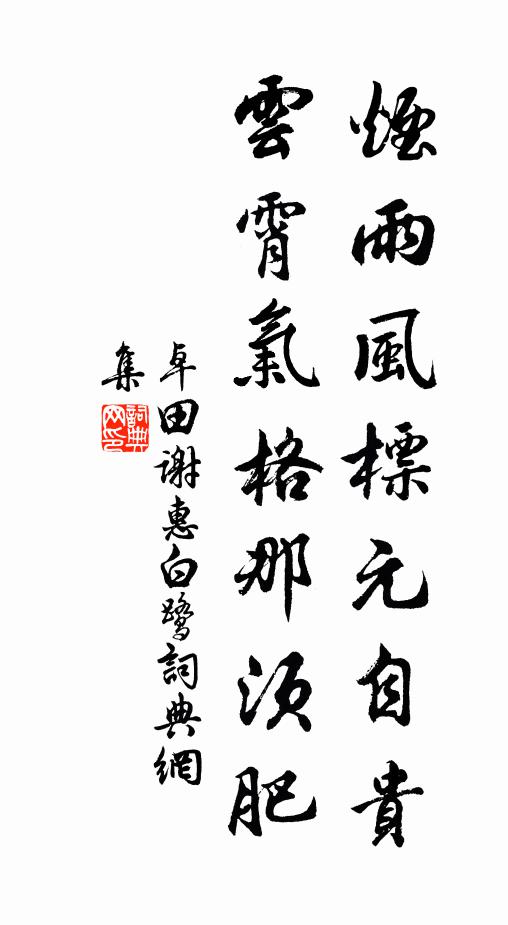 煙雨風標元自貴
雲霄氣格那須肥
卓田謝惠白鷺詞典網
集
詞典网印